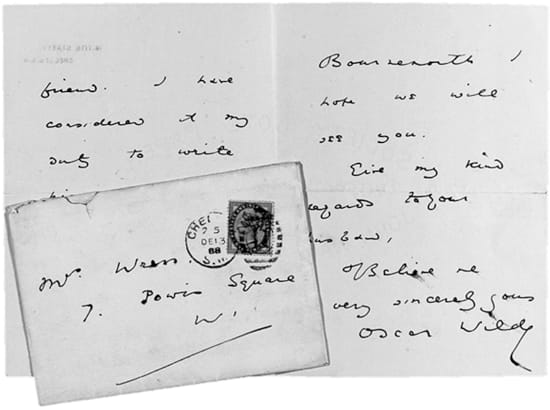 friend. I have
considered it my
duty to write
Bournemouth I
hope we will
see you.
Give my kind
regards to your
husband,
Believe me
very sincerely yours
Oscar Wilde
CHEL
DE 13
88
S.W.
Mrs
7. Powis Square
W.